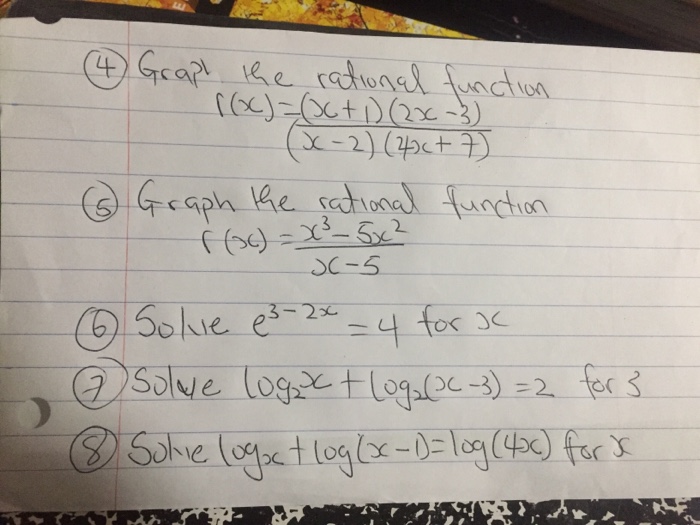 ④ Graph the rational function
f(x) = (x+1)(2x-3)
(x-2)(4x+7)
⑤ Graph the rational function
f(x) = x³-5x²
x-5
⑥ Solve e³⁻²ˣ = 4 for x
⑦ Solve log₂x + log₂(x-3) = 2 for 3
⑧ Solve logx + log(x-1) = log(4x) for x